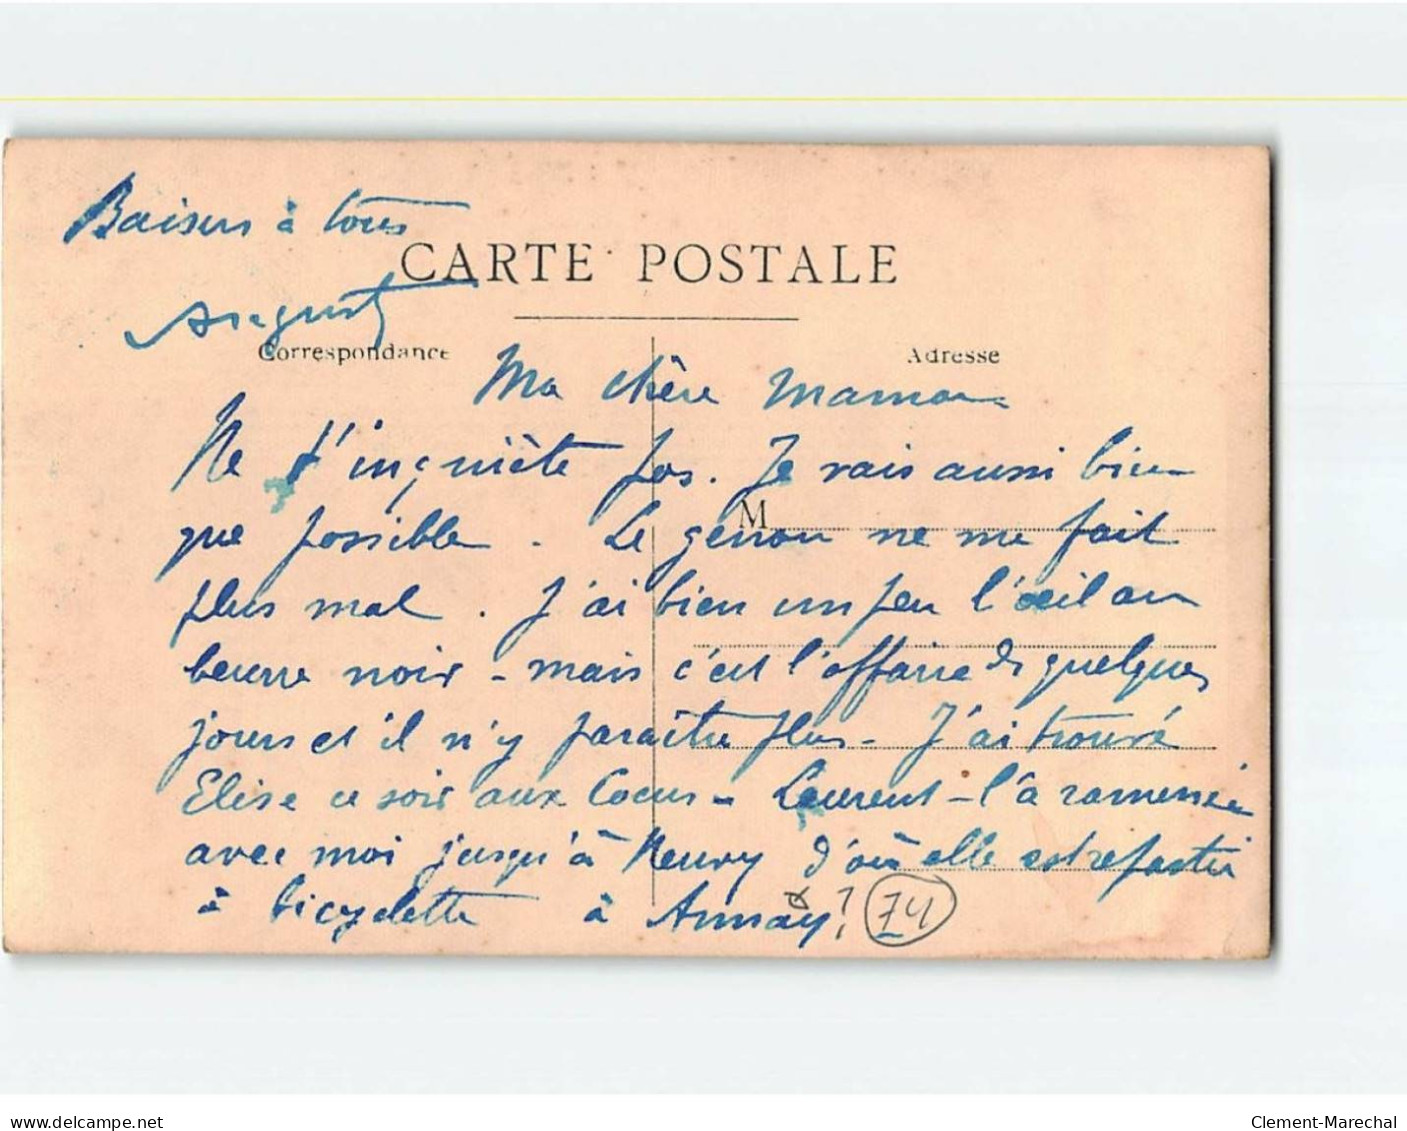 Baisers à tous
CARTE POSTALE
August
Correspondance
Adresse
Ma chère Maman
Ne t'inquiète pas. Je vais aussi bien
M
que possible. Le genou ne me fait
plus mal. J'ai bien un peu l'œil au
beurre noir - mais c'est l'affaire de quelques
jours et il n'y paraîtra plus - J'ai trouvé
Elise ce soir aux Cocus - Laurent - l'a ramenée
avec moi jusqu'à Neuvy d'où elle est repartie
à bicyclette à Annay ? 74
delcampe.net
Clement-Marechal